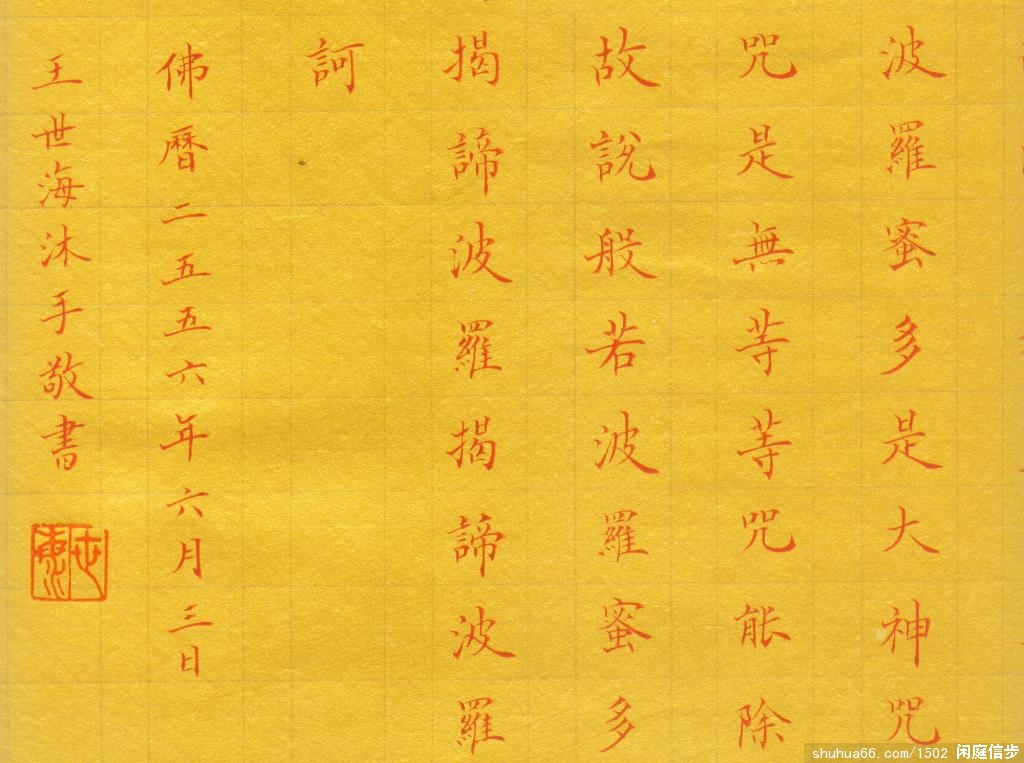 波羅蜜多是大神咒
咒是無等等咒能除
故說般若波羅蜜多
揭諦波羅揭諦波羅
訶
佛曆二五五六年六月三日
王世海沐手敬書
shuhua66.com/1502 闲庭信步